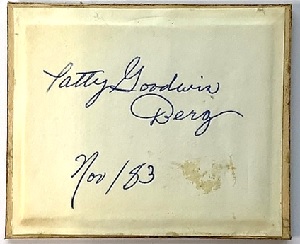 Patty Goodwin
Berg
Nov/83